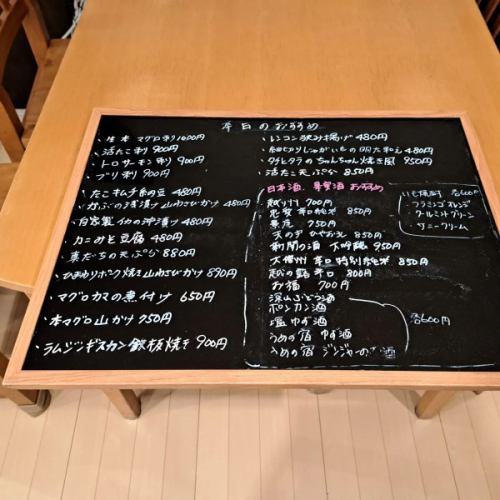 本日のおすすめ
・生本マグロ刺 1400円
・活たこ刺 900円
・トロサーモン刺 900円
・ブリ刺 900円
・たこキムチ納豆 480円
・かぶの浅漬け山わさびかけ 480円
・自家製イカの沖漬け 480円
・カニのみと豆腐 480円
・真だちの天ぷら 880円
・ひまわりホッケ焼き山わさびかけ 890円
・マグロカマの煮付け 650円
・本マグロ山かけ 750円
・ラムジンギスカン鉄板焼き 900円
・レンコン挟み揚げ 480円
・細切りじゃがいもの明太和え 480円
・タチとタラのちゃんちゃん焼き風 950円
・活たこ天ぷら 850円
日本酒、果実酒 おすすめ
越乃州 700円
辛口純米 850円
750円
天の戸 ひやおろし 850円
新潟の酒 大吟醸 950円
大信州 辛口特別純米 850円
越の 辛口 800円
お福 700円
深山ぶどう酒
ポンカン酒
塩ゆず酒
うめの宿 ゆず酒
うめの宿 ジンジャーの酒
各600円
いも焼酎 各600円
フラミンゴオレンジ
クールミントグリーン
サニークリーム